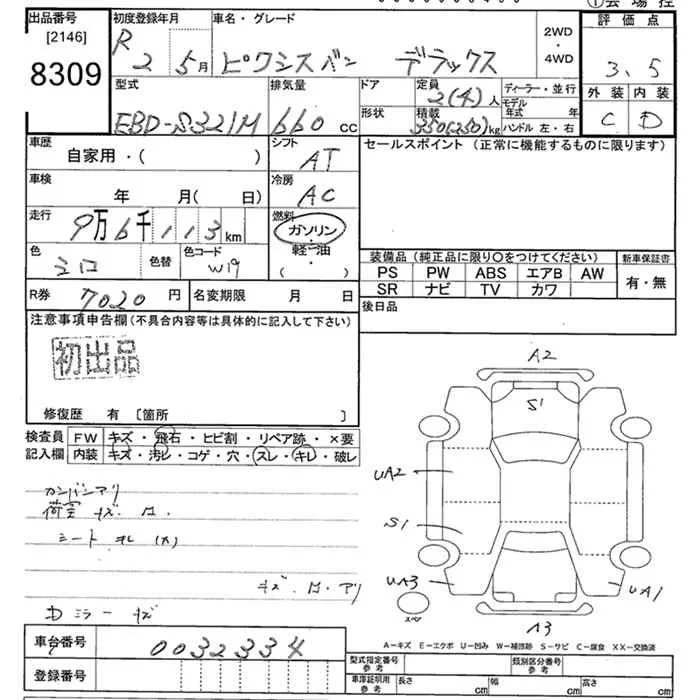 出品番号
[2146]
8309
初度登録年月
R 2 5月
車名・グレード
ピクシスバン デラックス
2WD
・
4WD
評価点
3.5
外装 内装
C D
型式
EBD-S321M
排気量
660 cc
ドア
形状
定員
2(4)人
積載
350(250)kg
ディーラー・並行
モデル
年式 年
ハンドル 左・右
車歴
自家用・( )
シフト
AT
車検
年 月( 日)
冷房
AC
走行
9万6千113km
燃料
ガソリン
・
軽油
( )
色
シロ
色替
色コード
W19
R券 7020円
名変期限 月 日
セールスポイント(正常に機能するものに限ります)
装備品(純正品に限り○をつけてください)
新車保証書
PS PW ABS エアB AW
SR ナビ TV カワ
有・無
後日品
注意事項申告欄(不具合内容等は具体的に記入して下さい)
初出品
修復歴 有 〔箇所 〕
検査員
記入欄
FW キズ・飛石・ヒビ割・リペア跡・×要
内装 キズ・汚レ・コゲ・穴・スレ・キレ・破レ
カンバンアリ
荷室 キズ.
シート
キズ. アリ
Dミラーキズ
A2
S1
UA2
S1
UA3
UA1
A3
スペア
A-キズ E-エクボ U-凹み W-補修跡 S-サビ C-腐食 XX-交換済
車台番号 0032334
登録番号
型式指定番号
参考
類別区分番号
参考
車庫証明用
参考
長さ cm 幅 cm 高さ cm